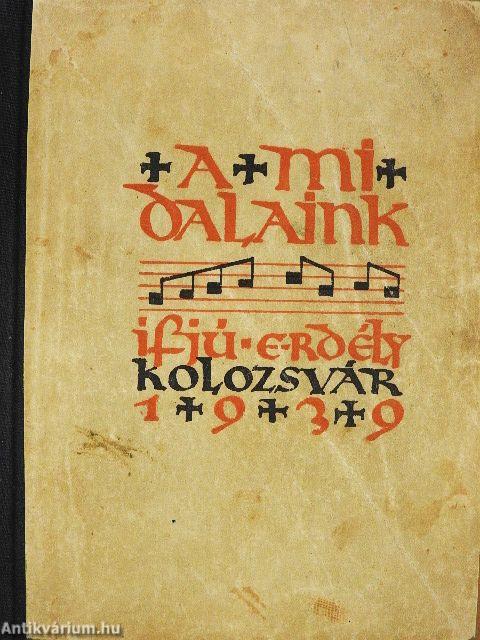 A MI
DALAINK
IFJÚ · ERDÉLY
KOLOZSVÁR
1939
Antikvárium.hu